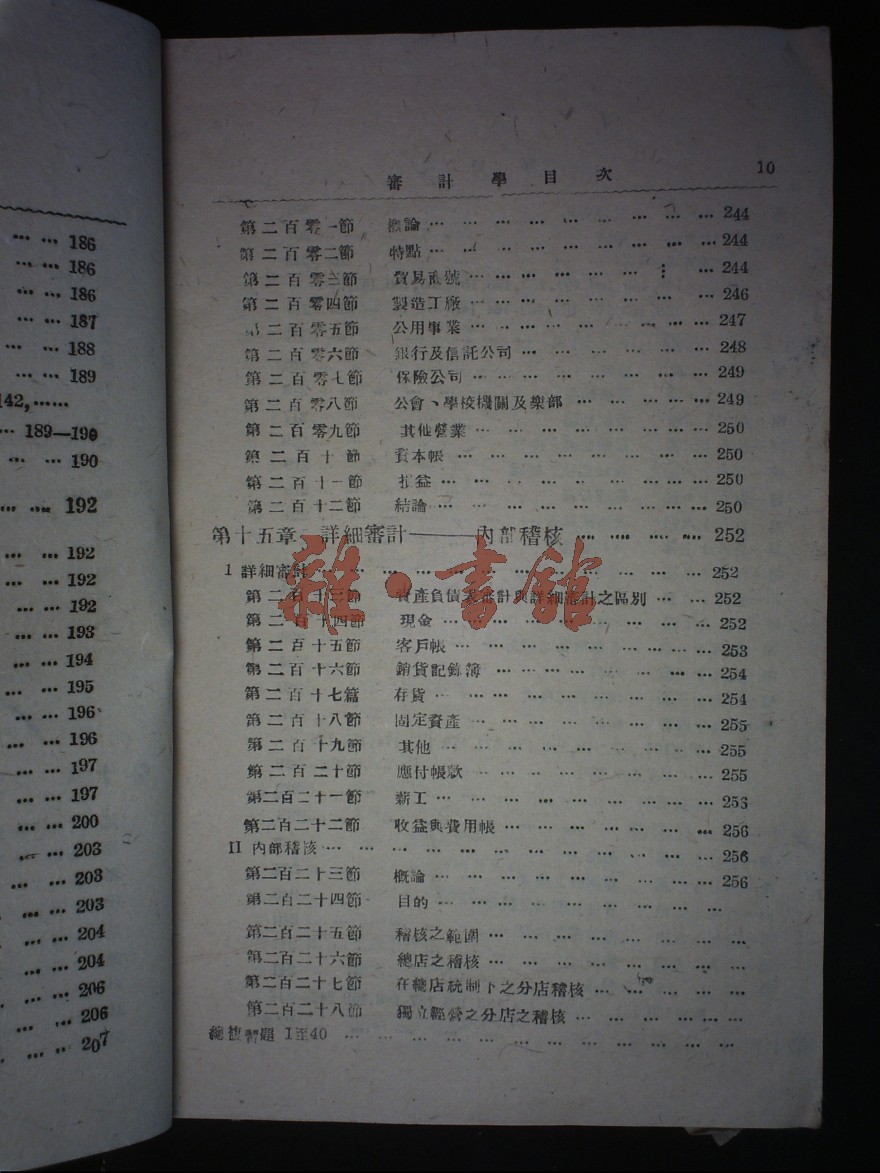 … … 186
… … 186
… … 186
… … 187
… … 188
… … 189
142,……
… 189—190
… … 190
… … 192
… … 192
… … 192
… … 192
… … 193
… … 194
… … 195
… … 196
… … 196
… … 197
… … 197
… … 200
… … 203
… … 203
… … 203
… … 204
… … 204
… … 206
… … 206
… … 207
審計學目次 10
第二百零一節 概論 … … … … … … … … … 244
第二百零二節 特點 … … … … … … … … … 244
第二百零三節 貿易商號 … … … … … … … … 244
第二百零四節 製造工廠 … … … … … … … … 246
第二百零五節 公用事業 … … … … … … … … 247
第二百零六節 銀行及信託公司 … … … … … … 248
第二百零七節 保險公司 … … … … … … … … 249
第二百零八節 公會、學校機關及樂部 … … … … 249
第二百零九節 其他營業 … … … … … … … … 250
第二百十節 資本帳 … … … … … … … … 250
第二百十一節 損益 … … … … … … … … 250
第二百十二節 結論 … … … … … … … … 250
第十五章 詳細審計———內部稽核 … … … … 252
1 詳細審計 … … … … … … … … … … 252
第二百十三節 資產負債表審計與詳細審計之區別 … … 252
第二百十四節 現金 … … … … … … … … 252
第二百十五節 客戶帳 … … … … … … … … 253
第二百十六節 銷貨記錄簿 … … … … … … … 254
第二百十七篇 存貨 … … … … … … … … 254
第二百十八節 固定資產 … … … … … … … 255
第二百十九節 其他 … … … … … … … … 255
第二百二十節 應付帳款 … … … … … … … 255
第二百二十一節 薪工 … … … … … … … … 253
第二百二十二節 收益與費用帳 … … … … … … 256
II 內部稽核 … … … … … … … … … … 256
第二百二十三節 概論 … … … … … … … … 256
第二百二十四節 目的 … … … … … … … … …
第二百二十五節 稽核之範圍 … … … … … … …
第二百二十六節 總店之稽核 … … … … … … …
第二百二十七節 在總店統制下之分店稽核 … … … …
第二百二十八節 獨立經營之分店之稽核 … … … … …
總複習題 1至40 … … … … … … … … … … …
雜·書館